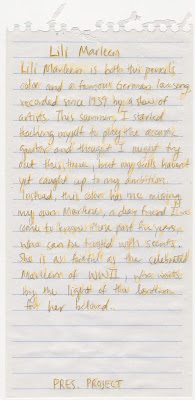 Lili Marleen
Lili Marleen is both this pencil's
color and a famous German love song
recorded since 1939 by a slew of
artists. This summer, I started
teaching myself to play the acoustic
guitar and thought I might try
out this tune, but my skills haven't
yet caught up to my ambition.
Instead, this color has me missing
my own Marleen, a dear friend I've
come to know these past few years,
who can be trusted with secrets.
She is as faithful as the celebrated
Marleen of WWII, who waits
by the light of the lantern
for her beloved.
PRES. PROJECT